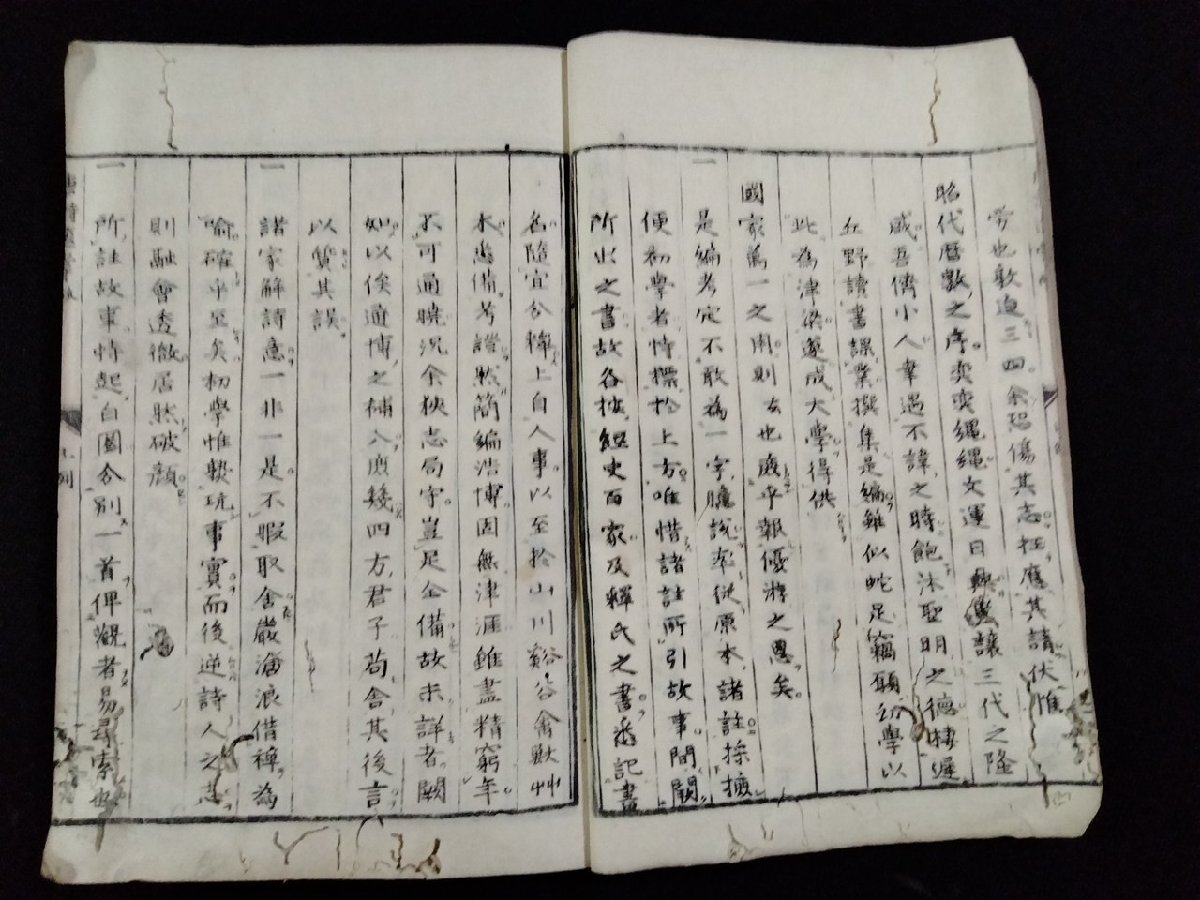 労也敦迫三四余恐傷其志抂應其請伏惟
昭代暦數之序奕奕縄縄文運日興讓三代之隆
盛吾儕小人幸遇不諱之時飽沐聖明之德棲遲
丘野讀書課業撰集是編雖似蛇足竊願幼學以
此為津梁遂成大學得供
國家萬一之用則庶乎報優游之恩矣
一是編考定不敢為一字臆說率從原本諸註採擯
便初學者特標於上方唯惜諸註所引故事間闕
所出之書故各據經史百家及釋氏之書悉記畫
名隨宜分繹上自人事以至於山川谿谷禽獸艸
木悉備考證然簡編浩博固無津涯雖盡精窮年
不可通曉況余狭志局守豈足全備故未詳者闕
如以俟通博之補入庶幾四方君子苟舍其後言
以質其誤
一諸家解詩意一非一是不暇取舍嚴滄浪借禪為
喻確乎至矣初學惟熟玩事實而後逆詩人之志
則融會透徹居然破顏
一所註故事特起白圈分別一首俾觀者易尋索也